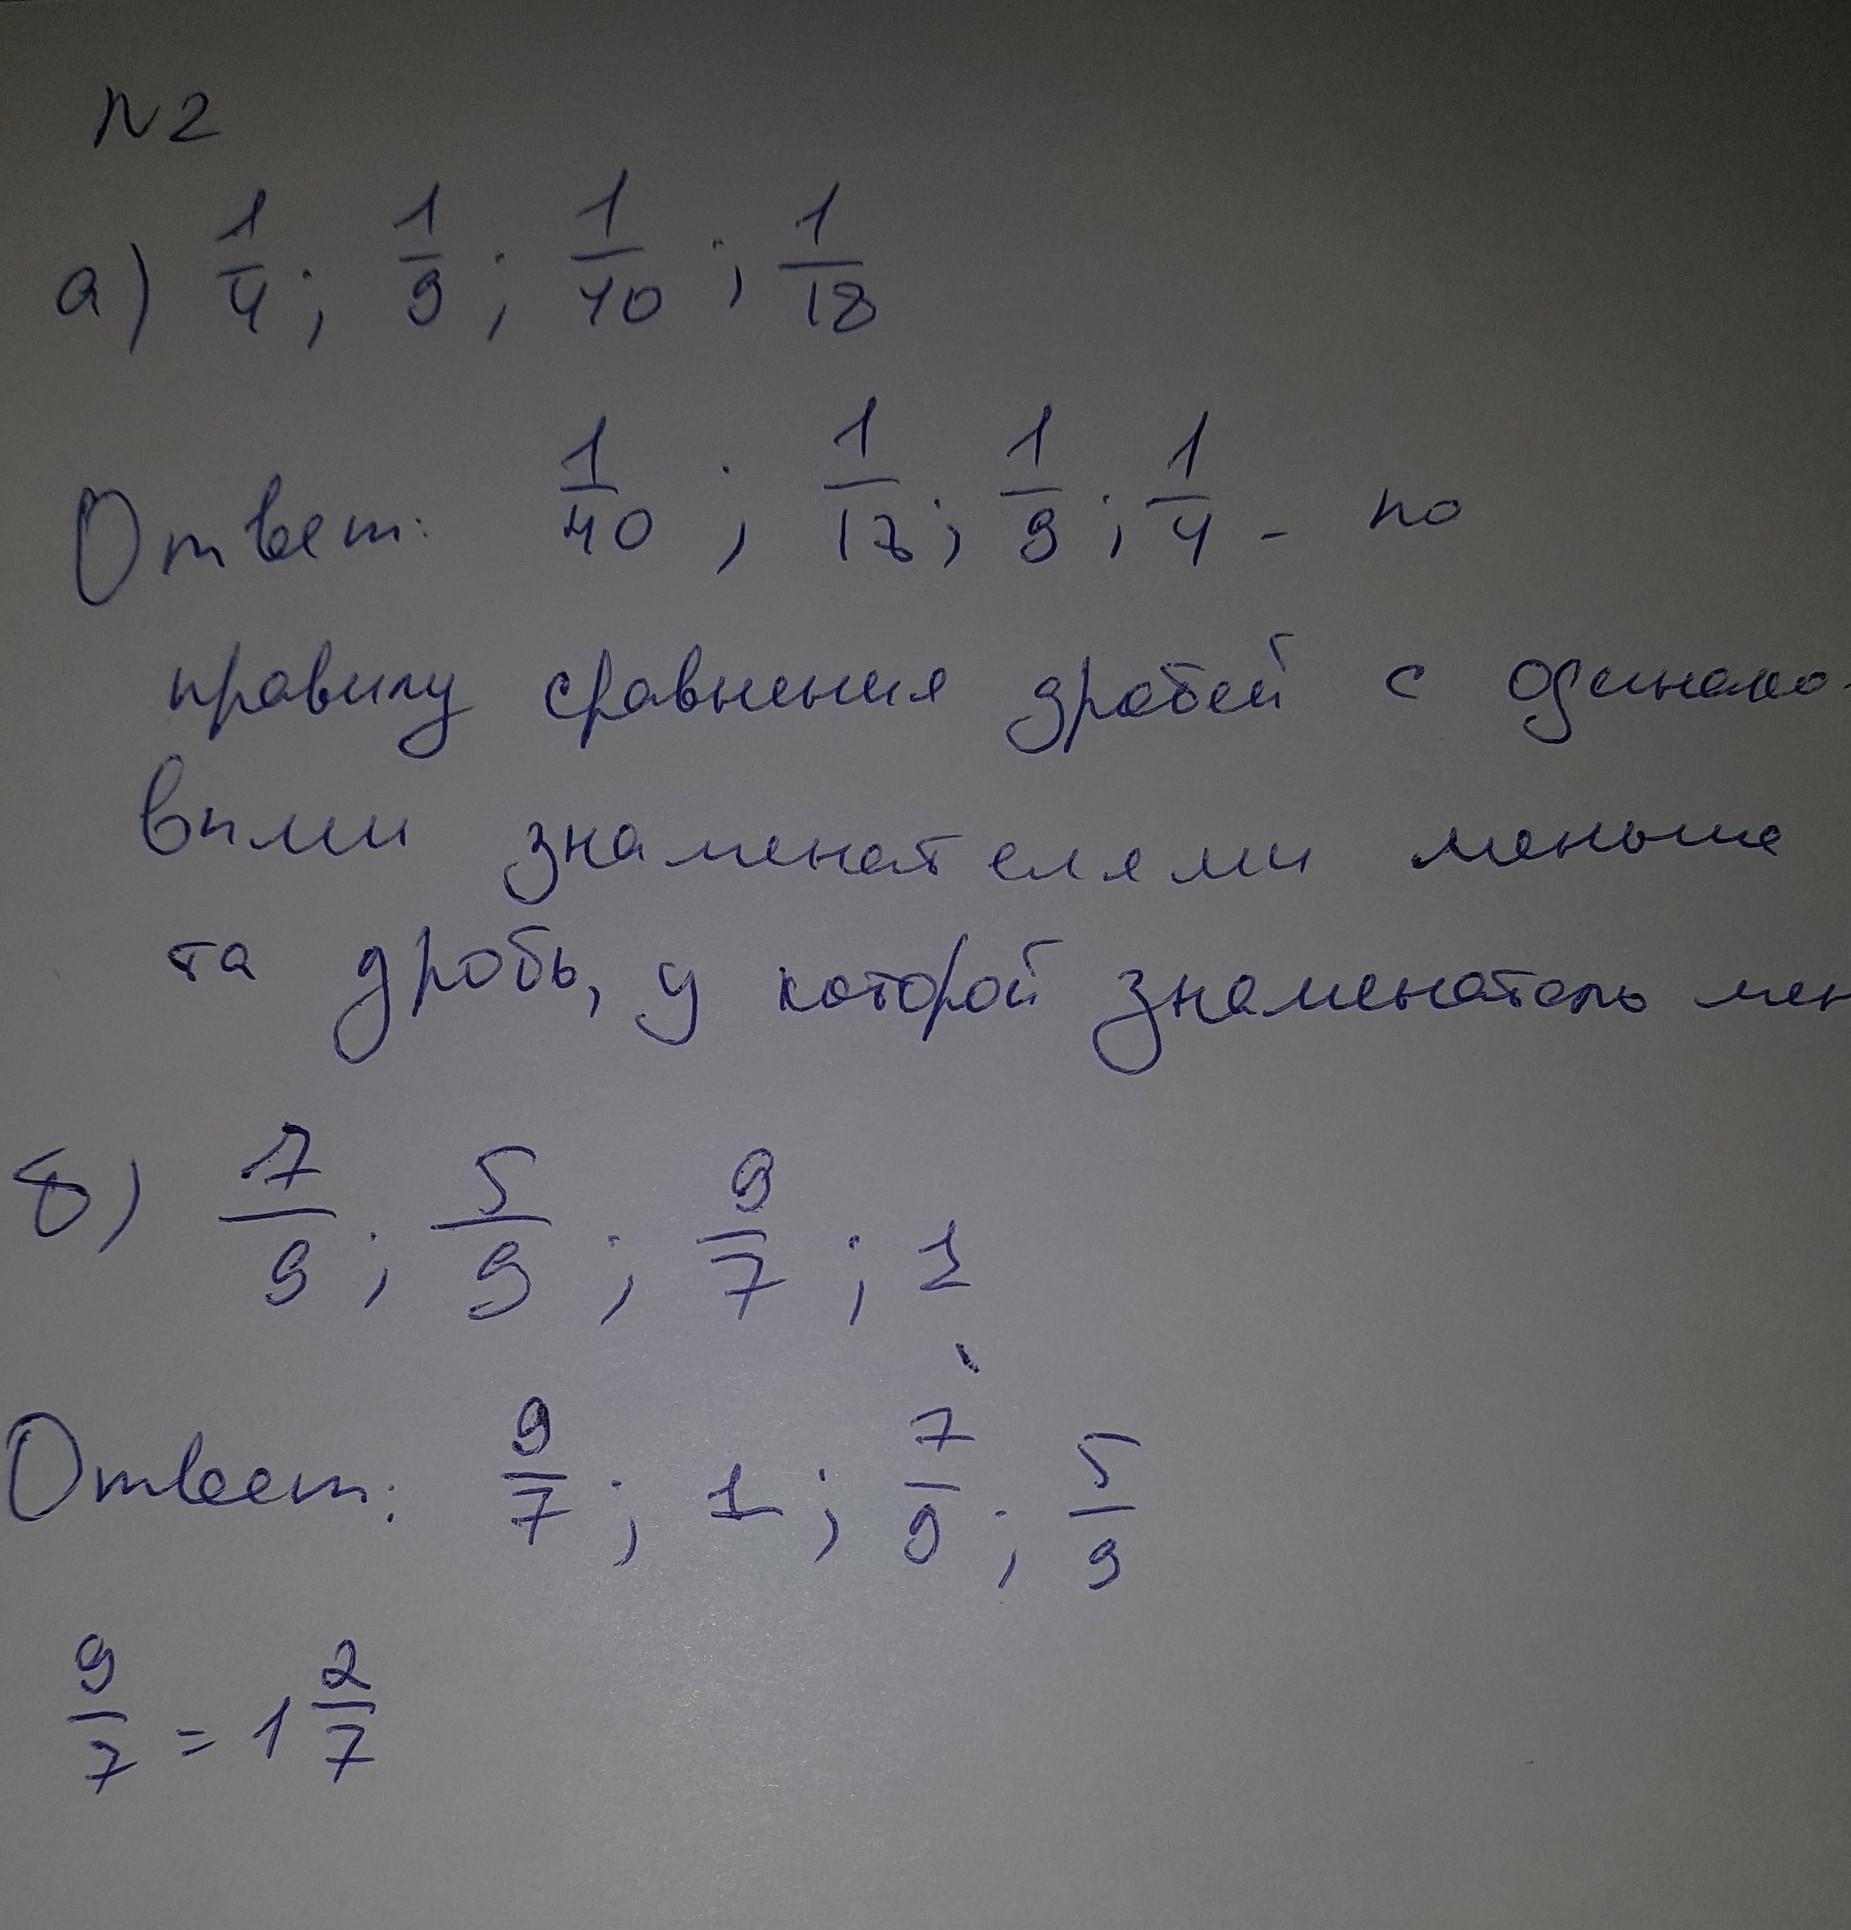 N2
а) 1/4; 1/9; 1/40; 1/18
Ответ: 1/40; 1/18; 1/9; 1/4 - по
правилу сравнения дробей с одинако-
выми знаменателями меньше
та дробь, у которой знаменатель мен
б) 7/9; 5/9; 9/7; 1
Ответ: 9/7; 1; 7/9; 5/9
9/7 = 1 2/7